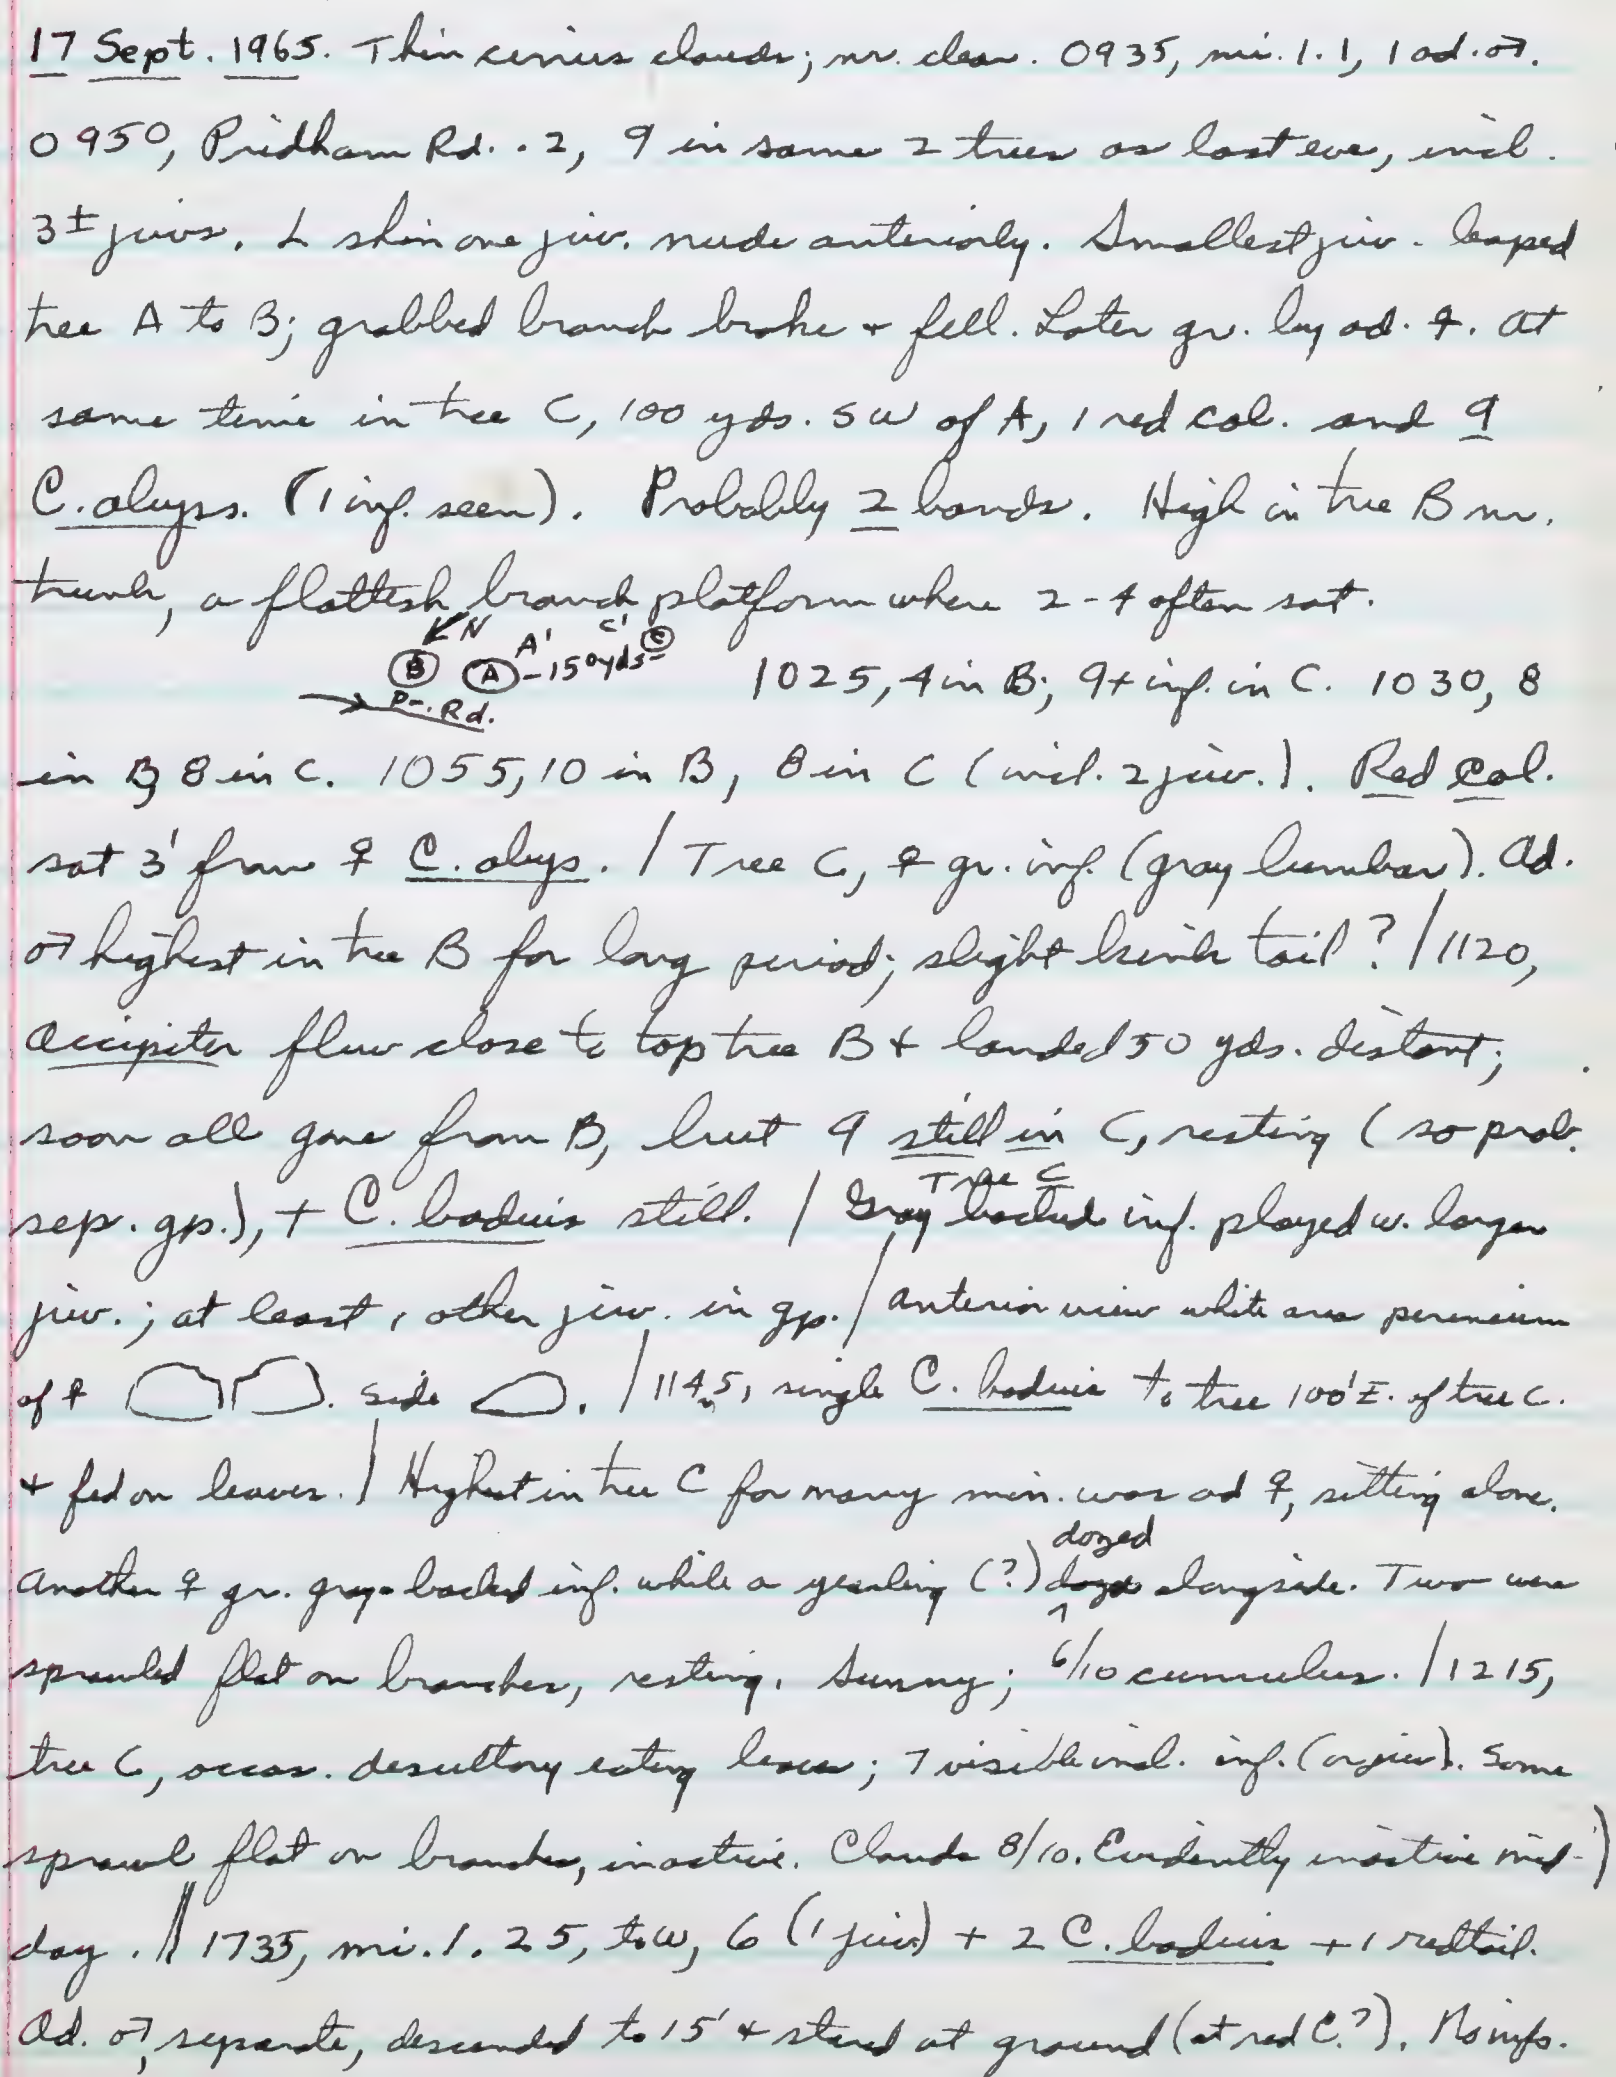 17 Sept. 1965. Thin cirrus clouds; nr. clear. 0935, mi. 1.1, 1 ad. ♂.
0950, Pridham Rd. .2, 9 in same 2 trees as last eve, incl.
3± juvs. L shin one juv. nude anteriorly. Smallest juv. leaped
tree A to B; grabbed branch broke + fell. Later gr. by ad. ♀. At
same time in tree C, 100 yds. SW of A, 1 red col. and 9
C. abyss. (1 inf. seen). Probably 2 bands. High in tree B nr.
trunk, a flattish branch platform where 2-4 often sat.
N
B A A' -150yds- C' C
P-. Rd.
1025, 4 in B; 9+inf. in C. 1030, 8
in B, 8 in C. 1055, 10 in B, 8 in C (incl. 2 juv.). Red Col.
sat 3' from ♀ C. abys. / Tree C, ♀ gr. inf. (gray lumbar). Ad.
♂ highest in tree B for long period; slight kink tail? / 1120,
Accipiter flew close to top tree B + landed 50 yds. distant;
soon all gone from B, but 9 still in C, resting (so prob.
sep. gp.), + C. badius still. / Tree C Gray backed inf. played w. larger
juv.; at least 1 other juv. in gp. / anterior view white area perineum
of ♀ . side . / 1145, single C. badius to tree 100' E. of tree C.
+ fed on leaves. / Highest in tree C for many min. was ad ♀, sitting alone.
Another ♀ gr. gray-backed inf. while a yearling (?) dozed alongside. Two were
sprawled flat on branches, resting. Sunny; 6/10 cumulus. / 1215,
tree C, occas. desultory eating leaves; 7 visible incl. inf. (or juv). Some
sprawl flat on branches, inactive. Clouds 8/10. Evidently inactive mid-)
day. // 1735, mi. 1.25, to W, 6 (1 juv) + 2 C. badius + 1 redtail.
Ad. ♂, separate, descended to 15' + stared at ground (at red C.?). No infs.